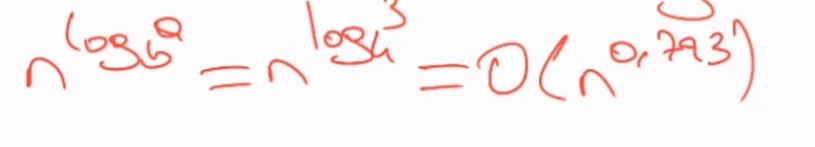 n^{log_b a} = n^{log_4 3} = O(n^{0,793})